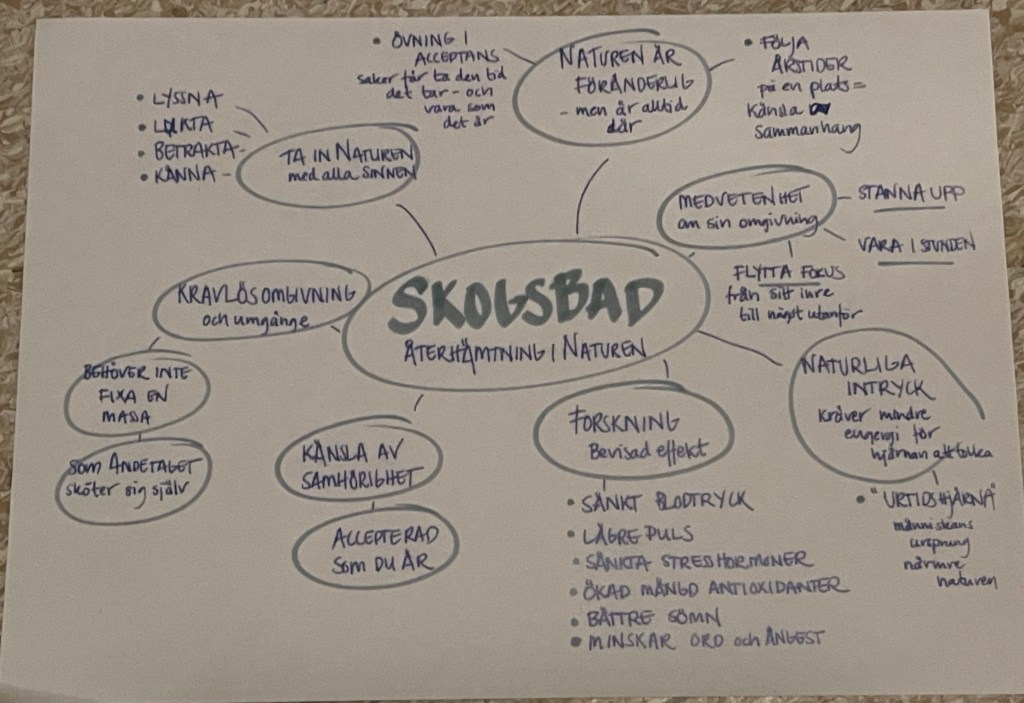 SKOGSBAD
ÅTERHÄMTNING I NATUREN
TA IN NATUREN
med alla SINNEN
• LYSSNA
• LUKTA
• BETRAKTA
• KÄNNA
NATUREN ÄR
FÖRÄNDERLIG
- men är alltid
där
• ÖVNING I
ACCEPTANS
saker får ta den tid
det tar - och
vara som
det är
• FÖLJA
ÅRSTIDER
på en plats =
känsla
sammanhang
MEDVETENHET
om sin omgivning
STANNA UPP
VARA I STUNDEN
FLYTTA FOKUS
från sitt inre
till något utanför
NATURLIGA
INTRYCK
kräver mindre
engergi för
hjärnan att tolka
• "URTIDSHJÄRNA"
människans
ursprung
närmre
naturen
FORSKNING
Bevisad effekt
• SÄNKT BLODTRYCK
• LÄGRE PULS
• SÄNKTA STRESSHORMONER
• ÖKAD MÄNGD ANTIOXIDANTER
• BÄTTRE SÖMN
• MINSKAR ORO och ÅNGEST
KÄNSLA AV
SAMHÖRIGHET
ACCEPTERAD
SOM DU ÄR
KRAVLÖS OMGIVNING
och umgänge
BEHÖVER INTE
FIXA EN
MASSA
SOM ANDETAGET
sköter sig själv